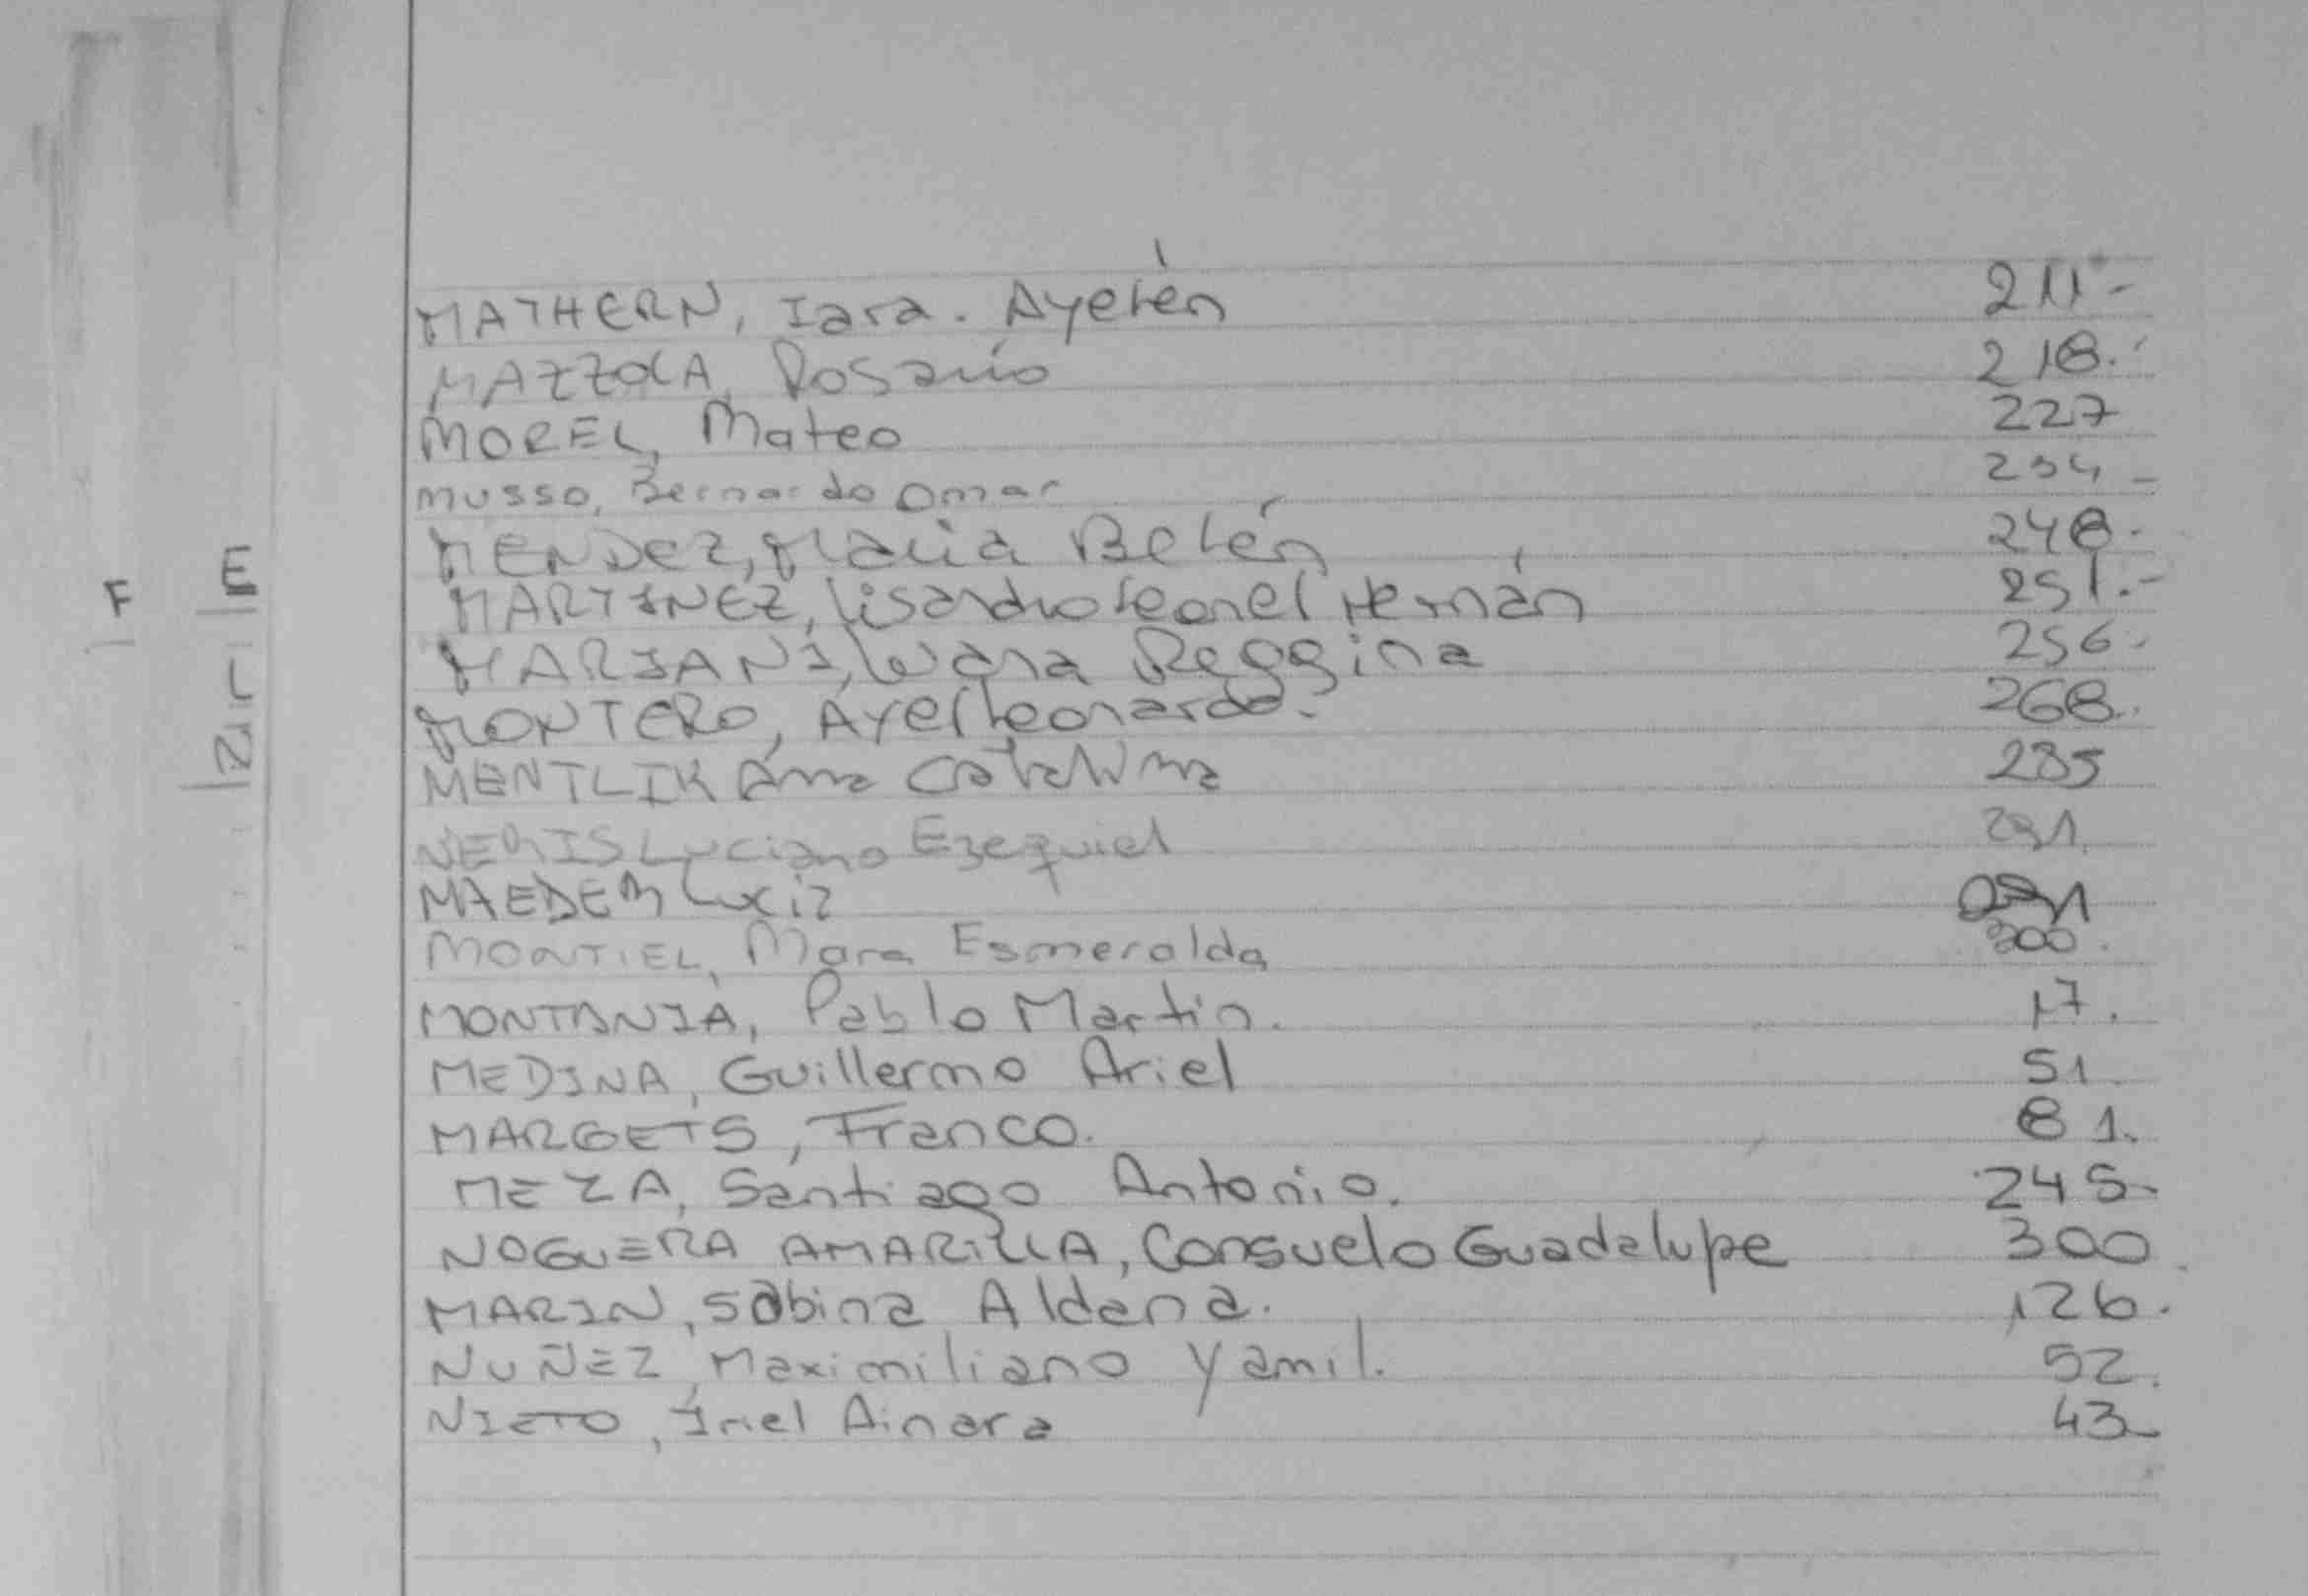 MATHERN, Iara. Ayelén 211.-
MAZZOLA, Rosario 218.-
MOREL, Mateo 227
Musso, Bernardo Omar 234 -
MENDEZ, María Belén 248.-
MARTINEZ, Lisandro Leonel Hernán 251.-
MARIANI, Wara Reggina 256.
MONTERO, Ayel Leonardo. 268.
MENTLIK Ana Catalina 285
NERIS Luciano Ezequiel 291.
MAEDER Lucia
MONTIEL, Mara Esmeralda 300.
MONTANIA, Pablo Martin. 17.
MEDINA, Guillermo Ariel 51.
MARGETS, Franco. 81.
MEZA, Santiago Antonio. 245-
NOGUERA AMARILLA, Consuelo Guadalupe 300.
MARIN, Sabina Aldana. 126.
NUÑEZ, Maximiliano Yamil. 52.
NIETO, Iriel Ainara 43-
F
E